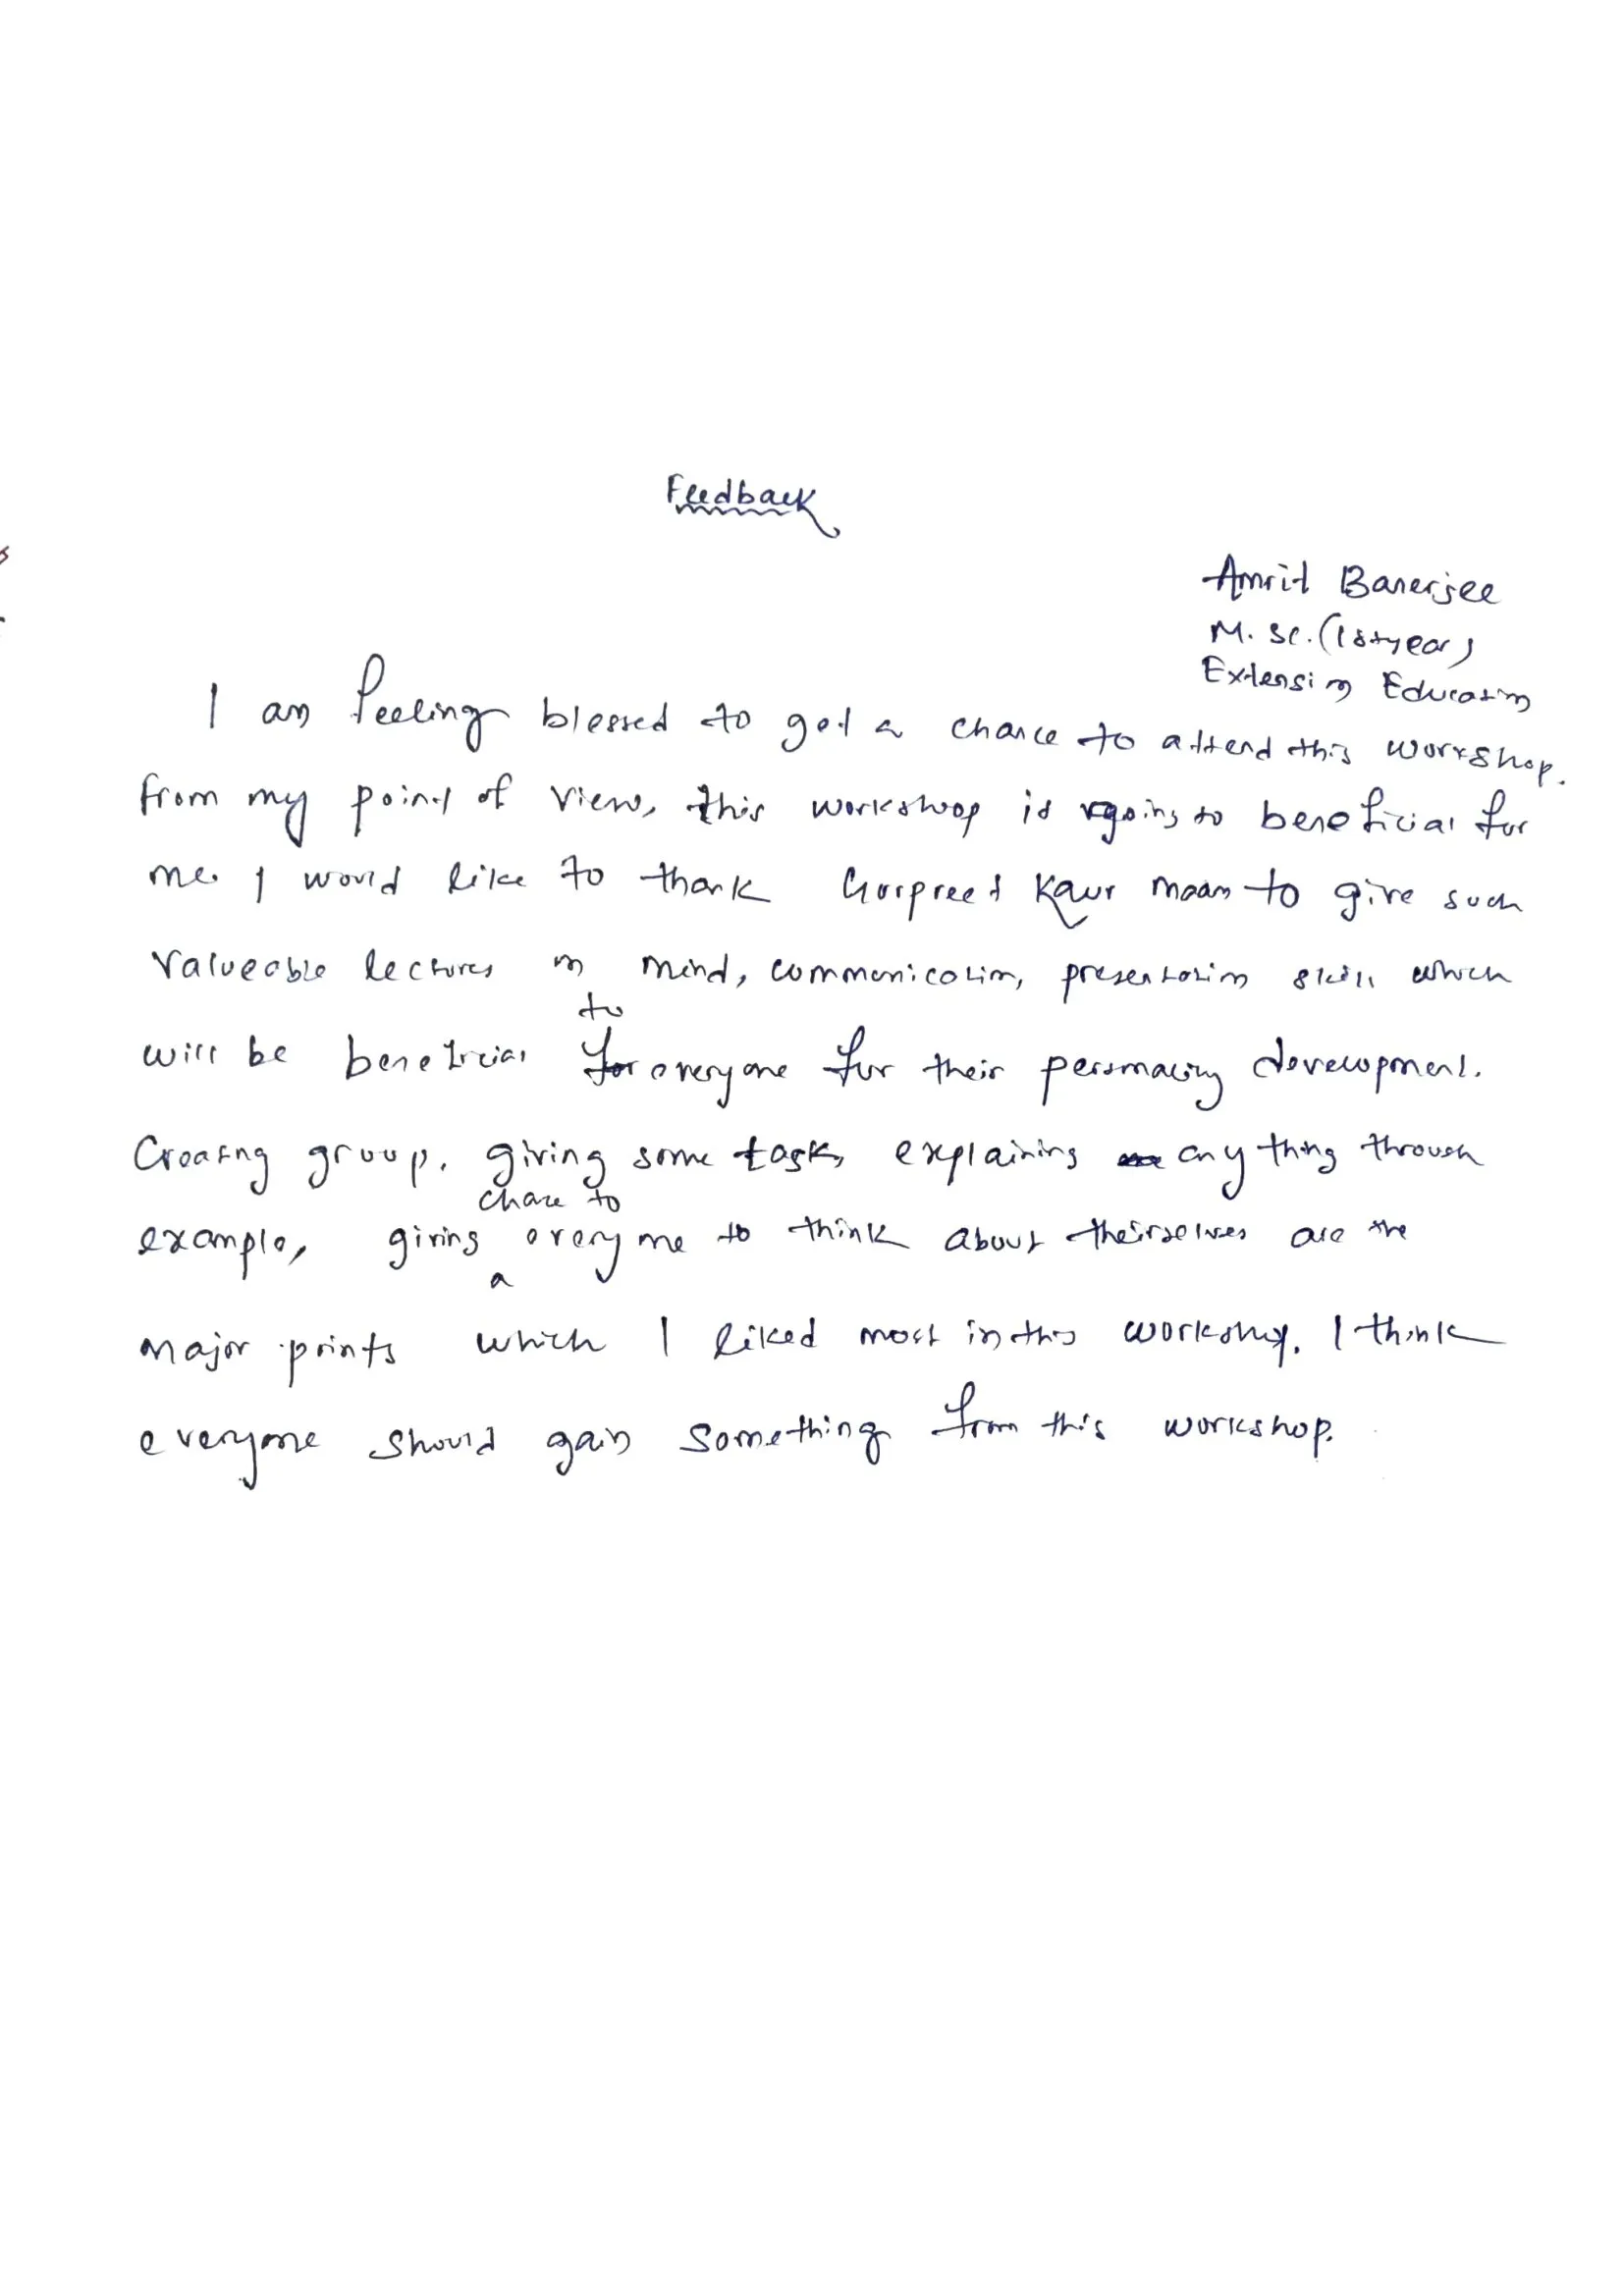 Feedback
Amrit Banerjee
M. Sc. (1st year)
Extension Education
I am feeling blessed to get a chance to attend this workshop.
from my point of view, this workshop is going to beneficial for
me. I would like to thank Gurpreet Kaur Maam to give such
valueable lectures on mind, communication, presentation skill which
to
will be beneficial for everyone for their personality development.
Creating group, giving some task, explaining any thing through
chance to
example, giving everyone to think about theirselves are the
a
major points which I liked most in this workshop. I think
everyone should gain something from this workshop.